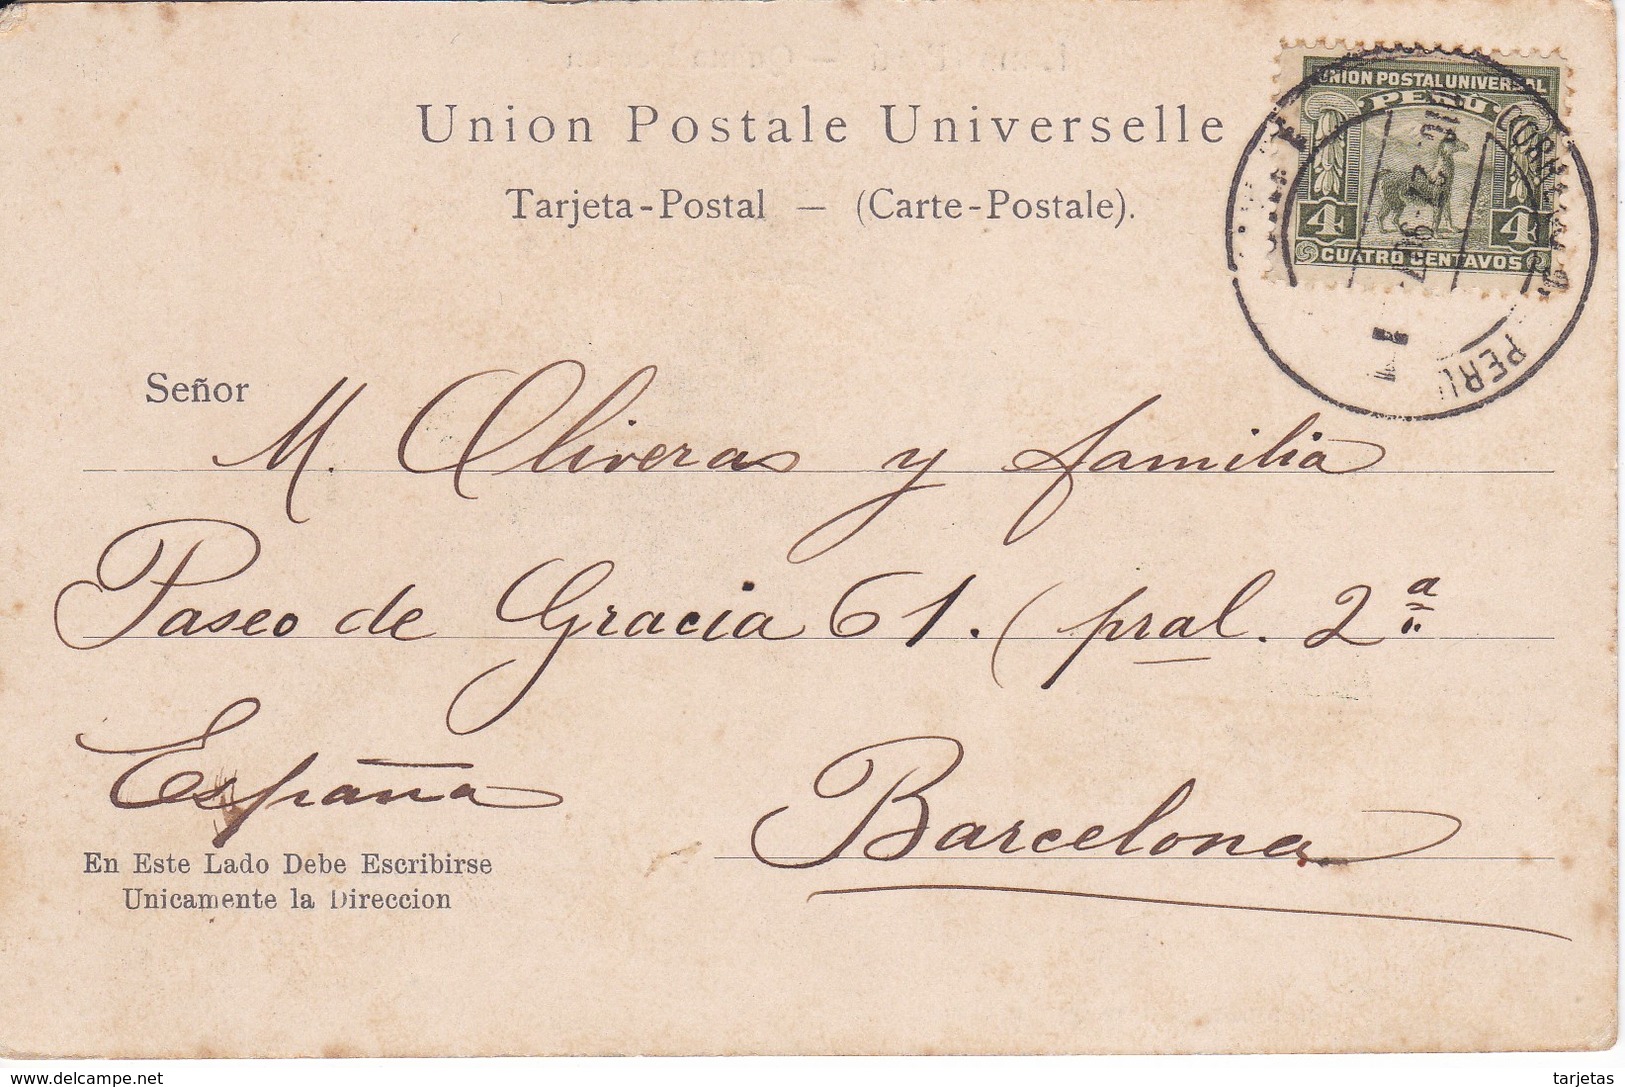 Union Postale Universelle
Tarjeta-Postal — (Carte-Postale).
UNION POSTAL UNIVERSAL
PERU
4 4
CUATRO CENTAVOS
PERU
Señor
M. Oliveras y familia
Paseo de Gracia 61. (pral. 2ª
España
Barcelona
En Este Lado Debe Escribirse
Unicamente la Direccion
www.delcampe.net
tarjetas